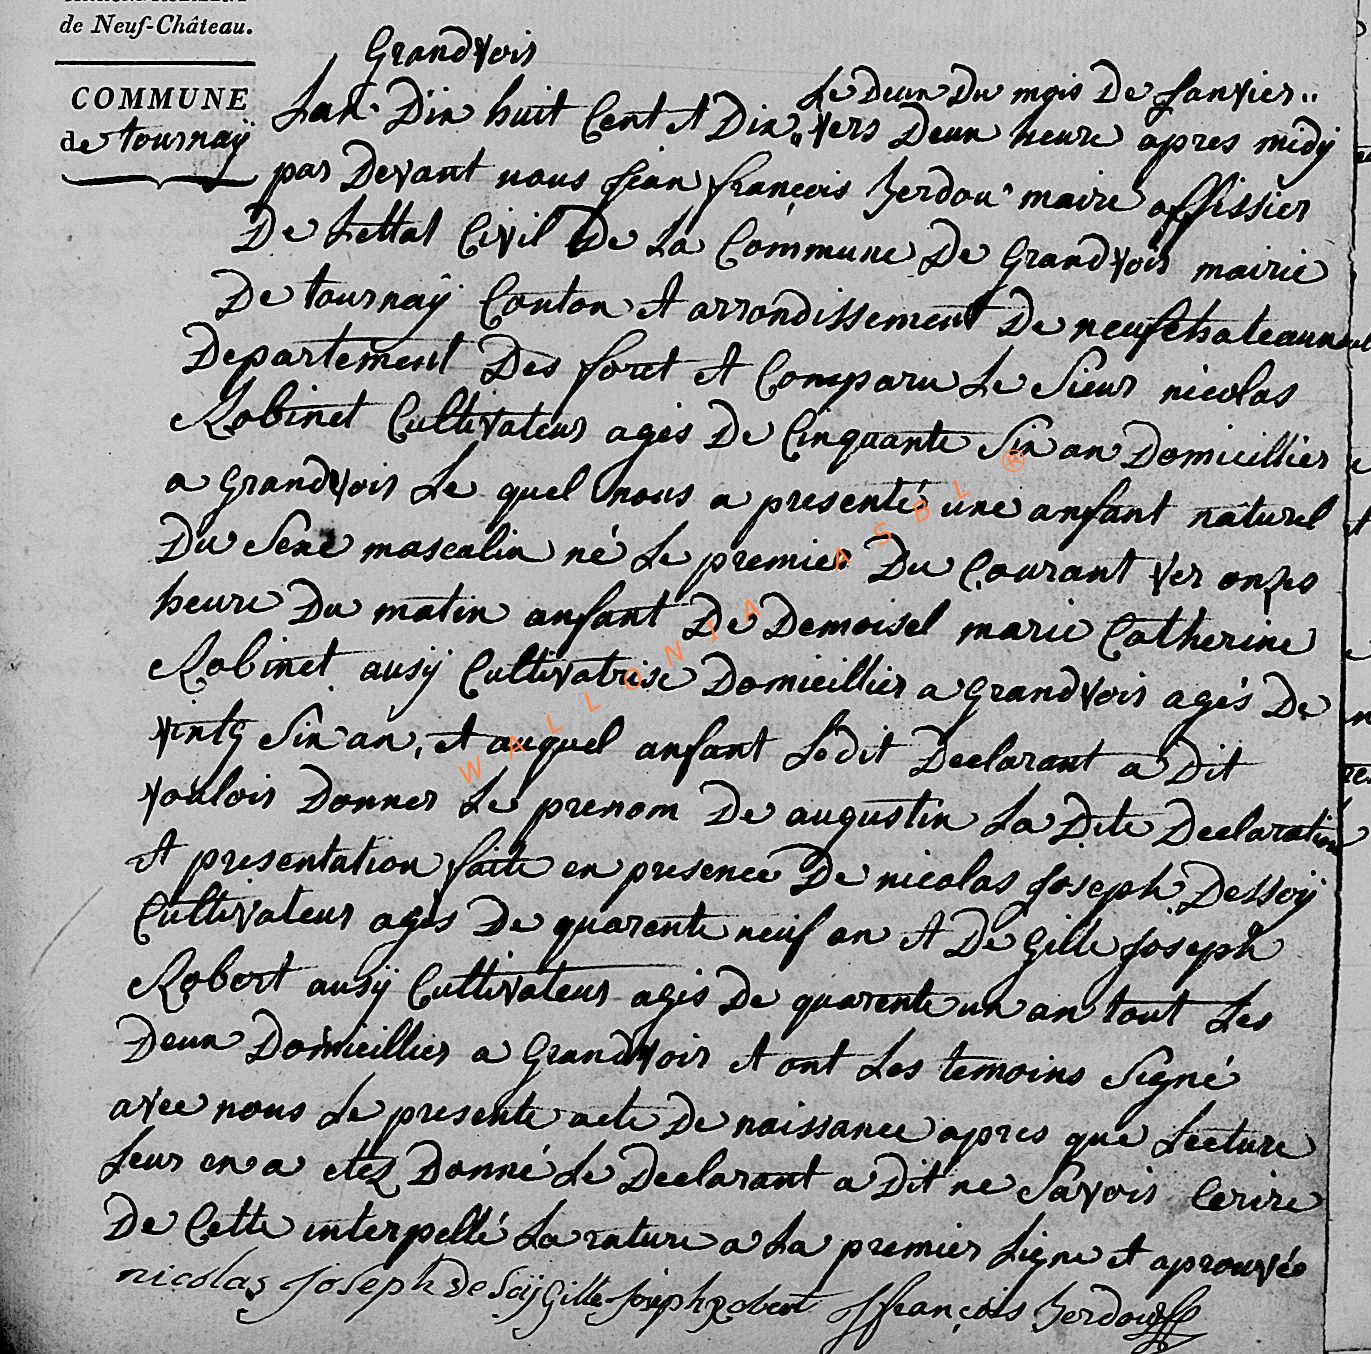 de Neuf-Château.
COMMUNE
de tournaÿ
Grandvoir
Le Deux Du mois De Janvier..
Lan Dix huit Cent et Dix, vers Deux heure apres midÿ
par Devant nous Jean françois herdou maire offissier
De Lettat Civil De La Commune De Grandvoir mairie
De tournaÿ Conton et arrondissement De neufchateaux
Departement Des foret et Comparu Le Sieur nicolas
Robinet Cultivateur agés De Cinquante Six an Domicillier
a grandvoir Le quel nous a presentés une anfant naturel
Du Sexe masculin né Le premier Du Courant ver onzes
heure Du matin anfant De Demoisel marie Catherine
Robinet ausÿ Cultivatrise Domicillier a grandvoir agés De
vintg Six an, et auquel anfant Le dit Declarant a Dit
vouloir Donner Le prenom De augustin La Dite Declaration
et presentation faite en presence De nicolas Joseph Dessoÿ
Cultivateur agés De quarente neuf an et De Gille Joseph
Robert ausÿ Cultivateur agés De quarente un an tout Les
Deux Domicillier a grandvoir et ont Les temoins Signé
avec nous Le presente acte De naissance apres que Lecture
Leur en a etez Donné Le Declarant a Dit ne Savoir Cerire
De Cette interpellé La rature a La premier Ligne et aprouvée
nicolas Joseph de Soÿ Gille Joseph Robert J françois herdou
WALLONIA ASBL ®